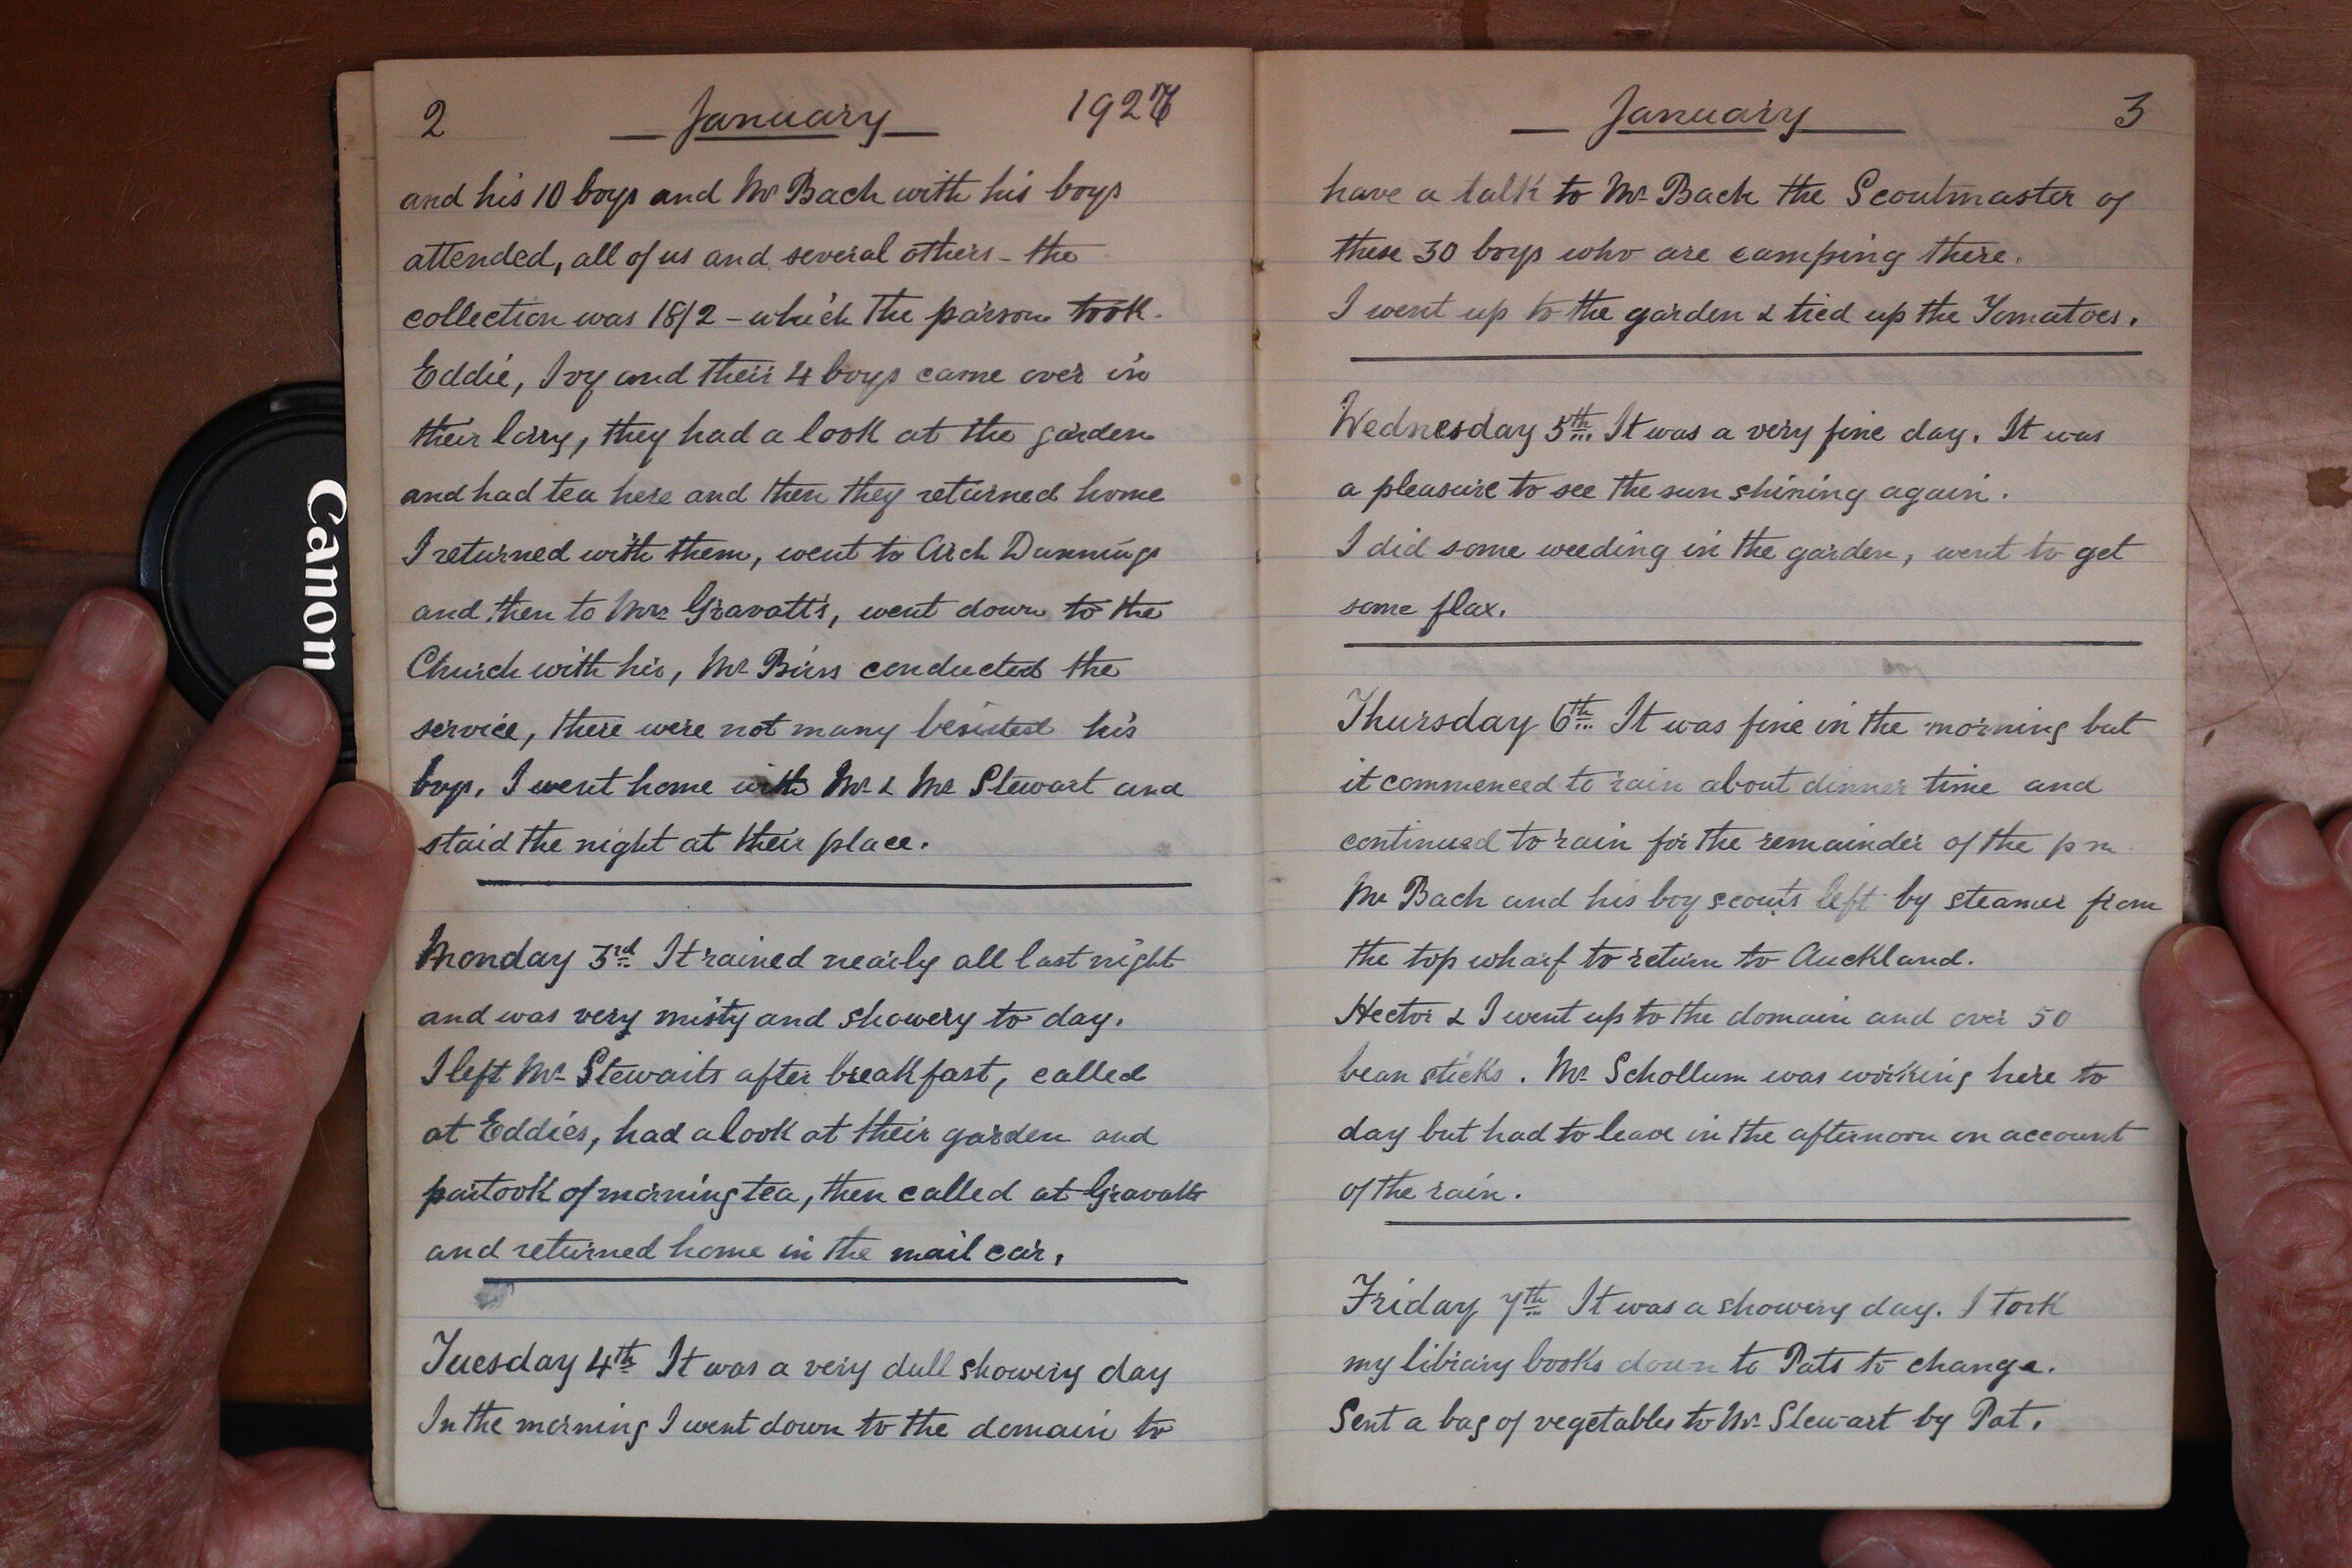 2 January 1927
and his 10 boys and Mr Bach with his boys
attended, all of us and several others - the
collection was 18/2 - which the parson took.
Eddie, Ivy and their 4 boys came over in
their lorry, they had a look at the garden
and had tea here and then they returned home
I returned with them, went to Arch Dunnings
and then to Mrs Gravatt's, went down to the
Church with her, Mr Birss conducted the
service, there were not many besides his
boys. I went home with Mr & Mrs Stewart and
staid the night at their place.
Monday 3rd It rained nearly all last night
and was very misty and showery to day.
I left Mr Stewarts after breakfast, called
at Eddies, had a look at their garden and
partook of morning tea, then called at Gravatts
and returned home in the mail car.
Tuesday 4th It was a very dull showery day
In the morning I went down to the domain to
January 3
have a talk to Mr Bach the Scoutmaster of
these 30 boys who are camping there.
I went up to the garden & tied up the Tomatoes.
Wednesday 5th It was a very fine day. It was
a pleasure to see the sun shining again.
I did some weeding in the garden, went to get
some flax.
Thursday 6th It was fine in the morning but
it commenced to rain about dinner time and
continued to rain for the remainder of the pm.
Mr Bach and his boy scouts left by steamer from
the top wharf to return to Auckland.
Hector & I went up to the domain and over 50
bean sticks. Mr Schollum was working here to
day but had to leave in the afternoon on account
of the rain.
Friday 7th It was a showery day. I took
my library books down to Pats to change.
Sent a bag of vegetables to Mr Stewart by Pat.
Canon